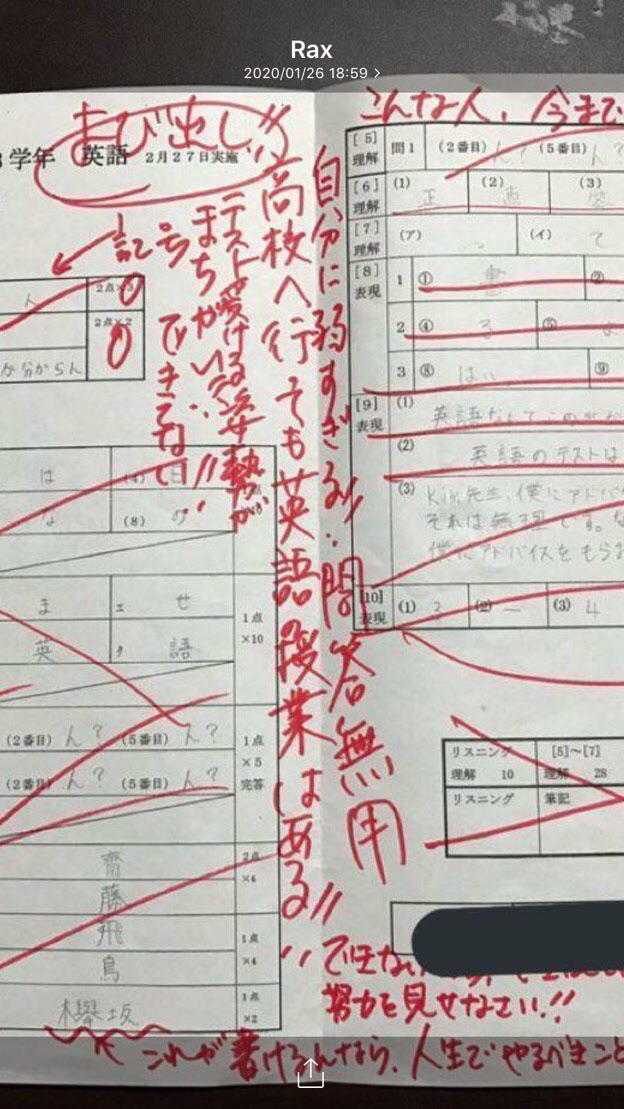 Rax
2020/01/26 18:59
よび出し!!
学年 英語 2月27日実施
こんな人、今まで
自分に弱すぎる!! 問答無用
高校へ行ても英語の授業はある!!
テスト受ける姿勢が
まちがい!!
記号
できてない!!
ん
2点×3
0
2点×2
0
か分からん
は
日
な
(8)
の
ま
エ
せ
1点
×10
英
ク
語
(2番目) ん? (5番目) ん?
1点
×5
完答
(2番目) ん? (5番目) ん?
齋
2点
×6
藤
飛
1点
×4
鳥
欅坂
1点
×2
[5]
理解
問1
(2番目) ん? (5番目) ん?
[6]
理解
(1)
正
(2)
直
(3)
答
[7]
理解
(ア)
っ
(イ)
て
[8]
表現
1
①
書
②
2
④
る
⑤
よ
3
⑧
はい
⑨
[9]
表現
(1)
英語なんてこの
(2)
英語のテストは
(3)
先生、僕にアドバイ
それは無理です。な
僕にアドバイスをもらお
[10]
表現
(1)
3
(2)
一
(3)
4
リスニング
理解 10
[5]~[7]
理解 28
リスニング
筆記
できない
努力を見せなさい!!
これが書けるんなら、人生でやるべきこと